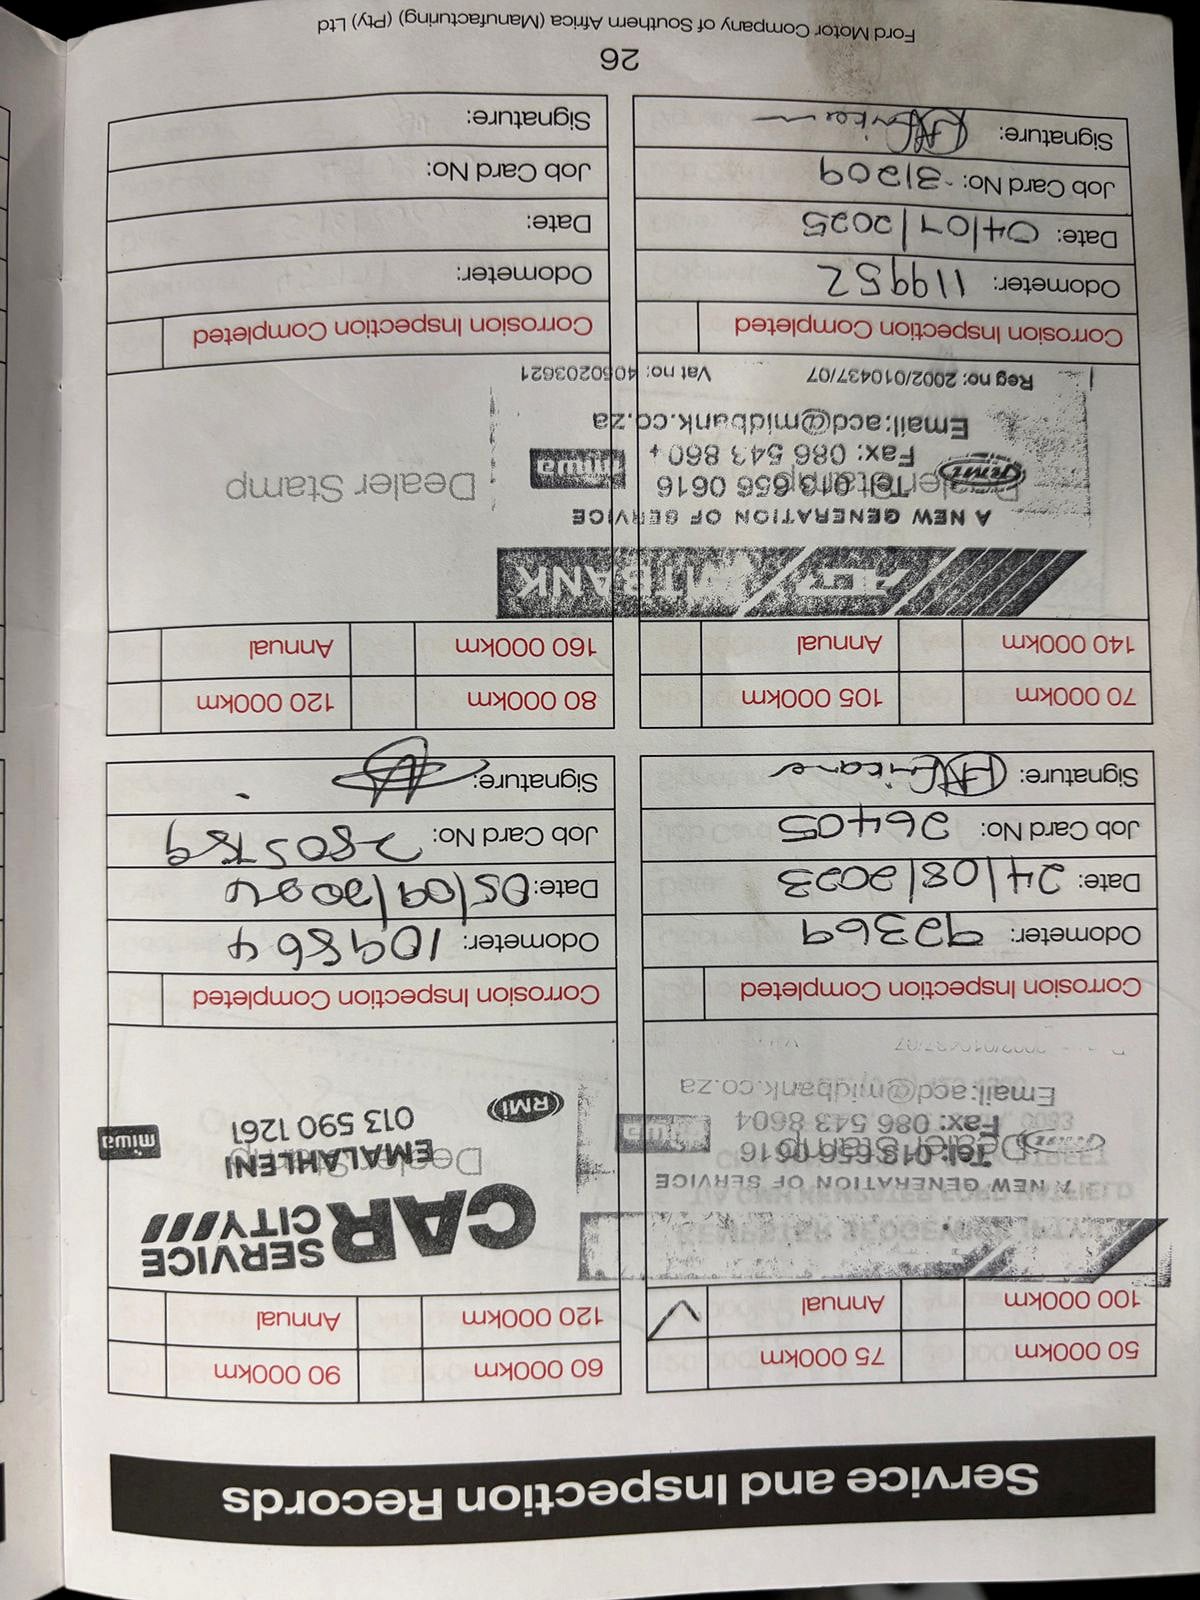 Service and Inspection Records
50 000km 75 000km
100 000km Annual ✓
A NEW GENERATION OF SERVICE
Dealer Stamp
Tel: 013 656 0616
Fax: 086 543 8604
Email:acd@midbank.co.za
2002/010437/07
Corrosion Inspection Completed
Odometer: 92369
Date: 24/08/2023
Job Card No: 26405
Signature:
60 000km 90 000km
120 000km Annual
CAR SERVICE CITY
EMALAHLENI
Dealer Stamp
013 590 1261
RMI
miwa
Corrosion Inspection Completed
Odometer: 109864
Date: 05/09/2024
Job Card No:
Signature:
70 000km 105 000km
140 000km Annual
WITBANK
A NEW GENERATION OF SERVICE
Dealer Stamp
Tel: 013 656 0616
Fax: 086 543 8604
miwa
Email:acd@midbank.co.za
Reg no: 2002/010437/07 Vat no: 4050203621
Corrosion Inspection Completed
Odometer: 119952
Date: 04/07/2025
Job Card No: 31209
Signature:
80 000km 120 000km
160 000km Annual
Dealer Stamp
Corrosion Inspection Completed
Odometer:
Date:
Job Card No:
Signature:
26
Ford Motor Company of Southern Africa (Manufacturing) (Pty) Ltd